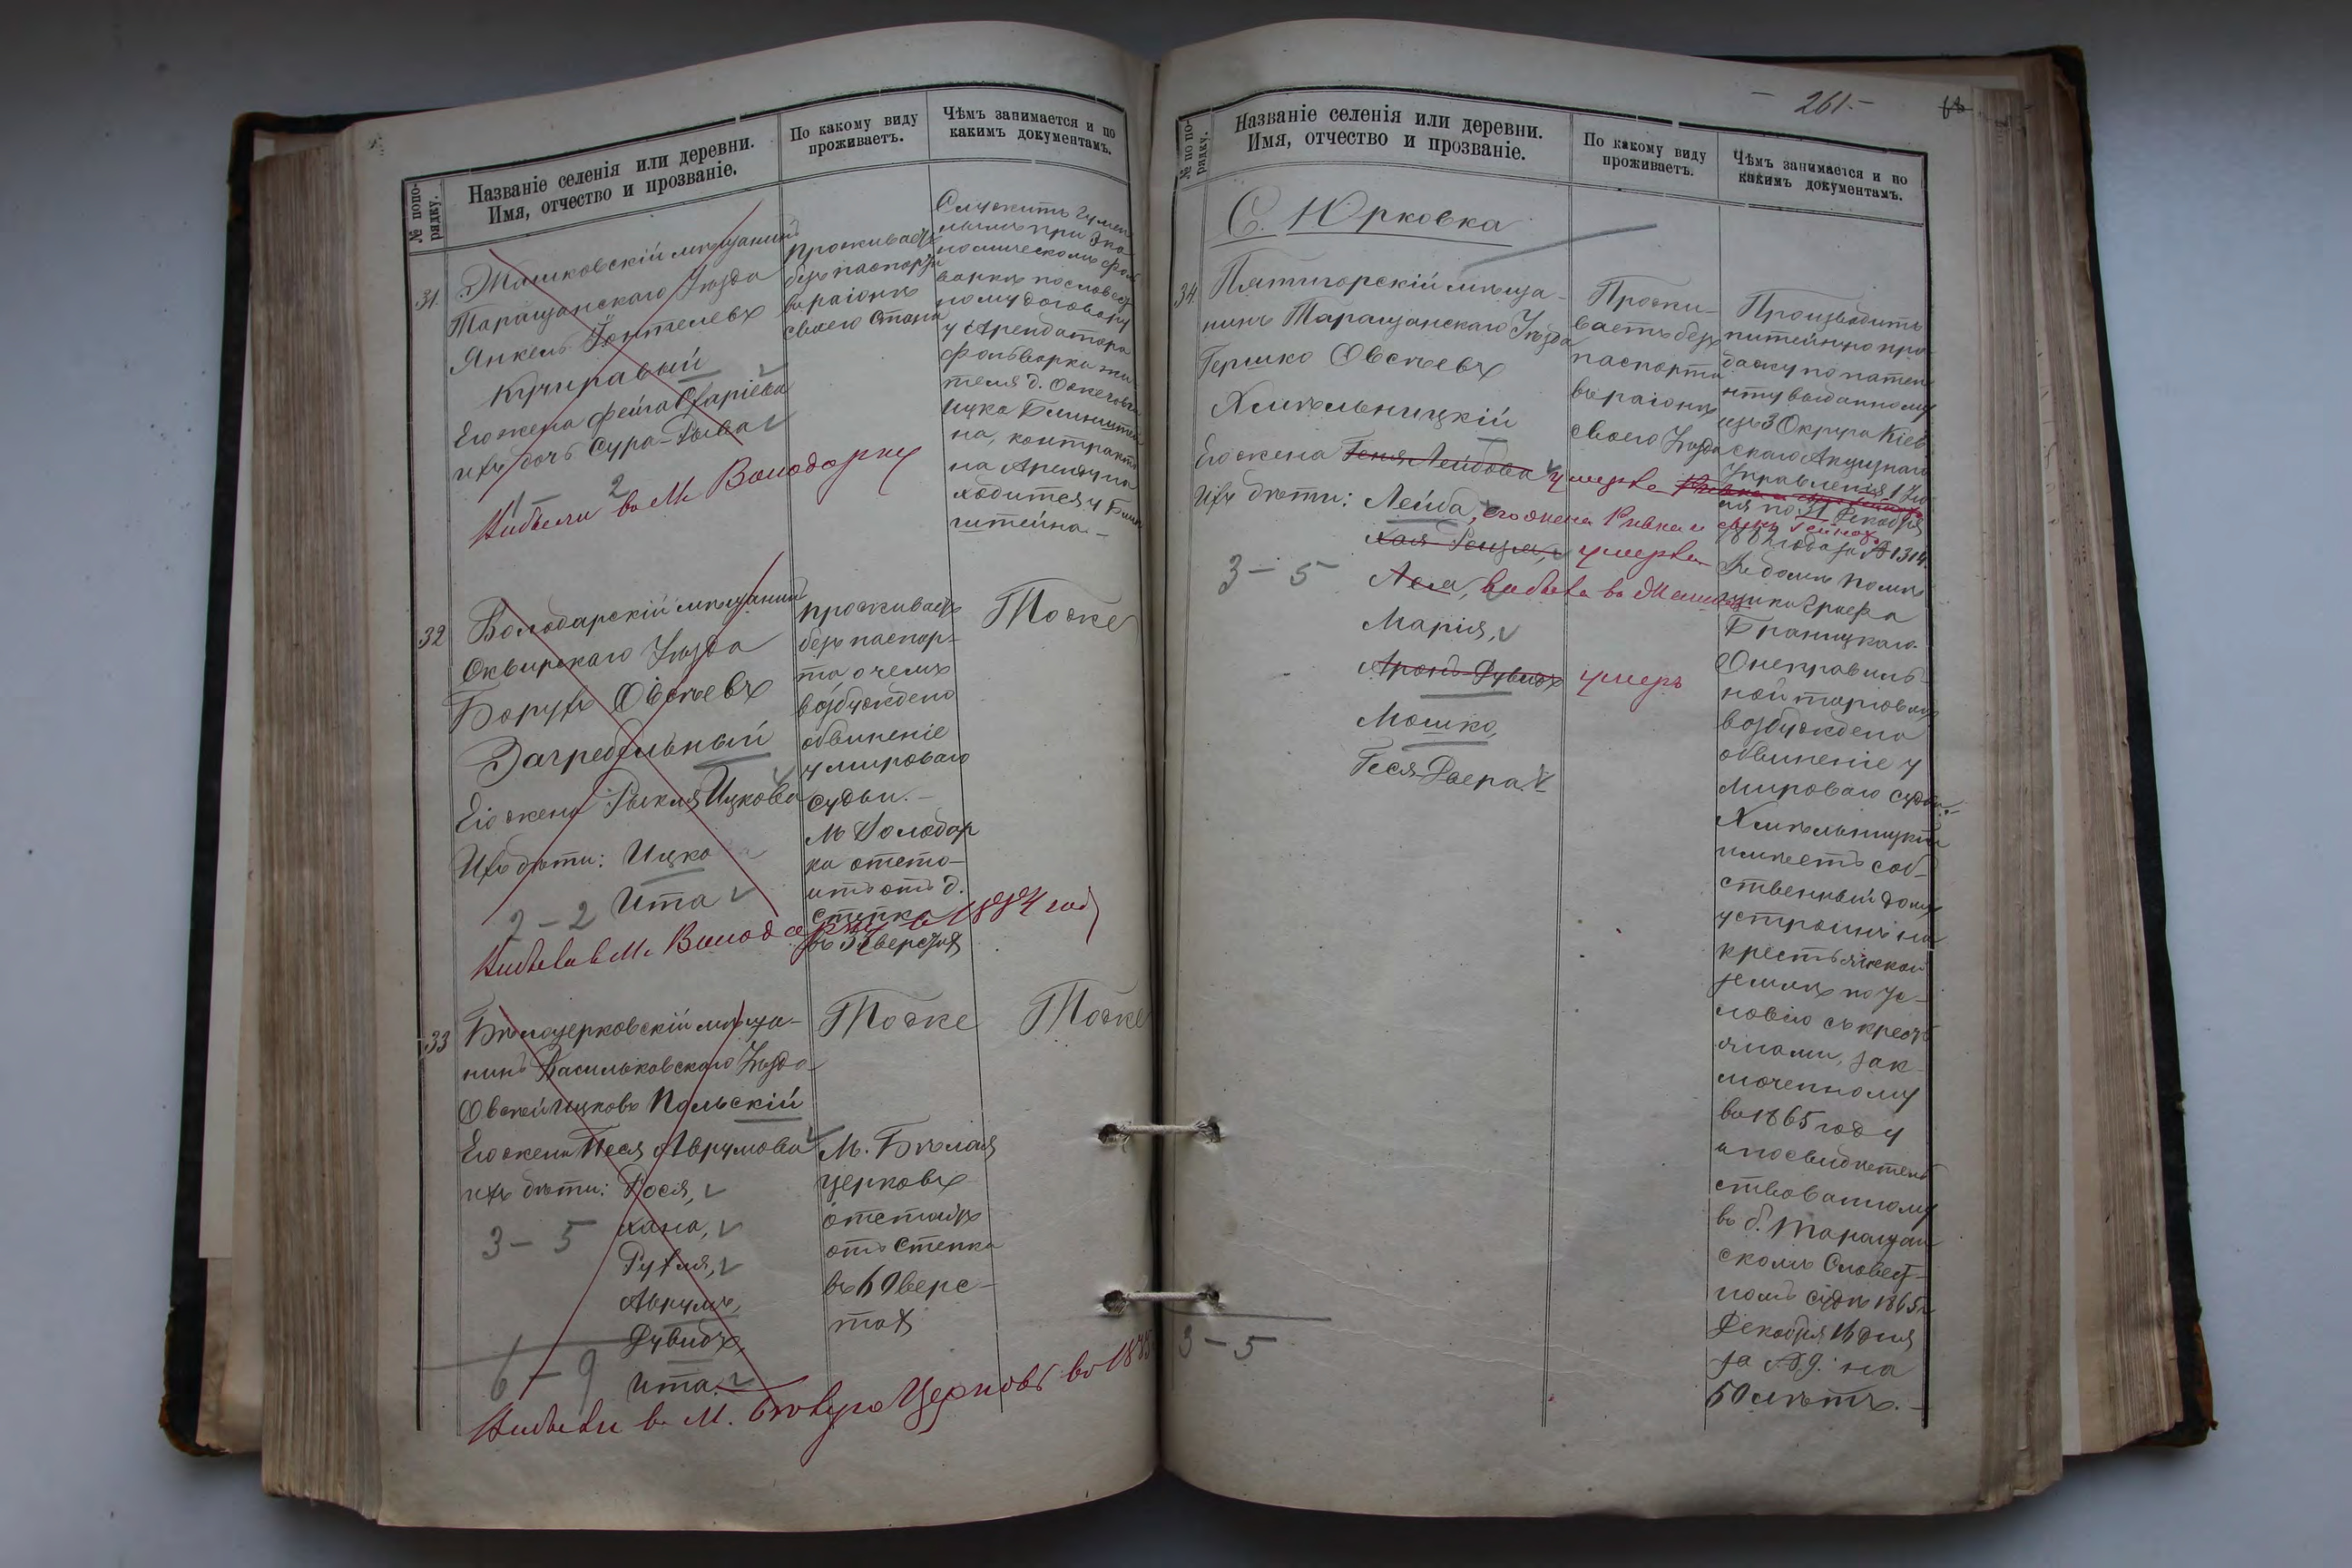 № попо-
рядку.
Названіе селенія или деревни.
Имя, отчество и прозваніе.
По какому виду
проживаетъ.
Чѣмъ занимается и по
какимъ документамъ.
31.
Жашковскій мѣщанинъ
Таращанскаго Уѣзда
Янкель
Кучиравый
Его жена Фейга
ихъ дочь Сура-Рыва
1 – 2
Выбыли в М. Володарку
проживаетъ
безъ паспорта
въ раіонѣ
своего Стана
Служитъ
при Эко-
номическомъ фоль
варкѣ по словес
ному договору
у Арендатора
фольварка жи-
теля д.
Ицка Блинштей
на, контрактъ
на Аренду на
ходится у Блин
штейна.–
32
Володарскій мѣщанинъ
Сквирскаго Уѣзда
Борухъ Овсѣевъ
Загребельный
Его жена Рыкля Ицкова
Ихъ дѣти: Ицко
Ита
2 – 2
Выбыла в М. Володарку в 1884 году
проживаетъ
безъ паспор-
та, о чемъ
возбуждено
обвиненіе
у мироваго
судьи.–
М Володар
ка отсто-
итъ отъ д.
Степка
въ 35 верстах
Тоже
33
Бѣлоцерковскій мѣща-
нинъ Васильковскаго Уѣзда
Овсѣй Ицковъ Польскій
Его жена Песя Аврумова
ихъ дѣти: Рося,
Хана,
Рухля,
Аврумъ,
Дувидъ,
Ита.
3 – 5
6 – 9
Выбыли в М. Бѣлую Церковь в 1885
Тоже
М. Бѣлая
церковь
отстоитъ
отъ Степка
въ 60 верс-
тах
Тоже
– 261 –
№ по по-
рядку.
Названіе селенія или деревни.
Имя, отчество и прозваніе.
По какому виду
проживаетъ.
Чѣмъ занимается и по
какимъ документамъ.
С. Юрковка
34.
Пятигорскій мѣща-
нинъ Таращанскаго Уѣзда
Гершко Овсѣевъ
Хмѣльницкій
Его жена Геня Лейбова умерла
Ихъ дѣти: Лейба, его жена Ривка и сынъ
Хая Рейзя, умерла
Лея, выбыла в
Марія,
Аронъ Дувидъ умеръ
Мошко,
Геся Двера.
3 – 5
3 – 5
Прожи-
ваетъ безъ
паспорта
въ раіонѣ
своего Уѣзда
Производитъ
питейную про
дажу по патен
ту выданному
изъ 3 Округа Кіев
скаго Акцизнаго
Управленія 1
по 31 Декабря
1882 года за № 1314.
Въ домѣ помѣ
щика Графа
Браницкаго.
О неправиль-
ной торговлѣ
возбуждено
обвиненіе у
Мироваго судьи.–
Хмѣльницкій
имѣетъ соб-
ственный домъ
устроенъ на
крестьянской
землѣ по ус-
ловію съ крест
янами, зак-
люченному
въ 1865 году
и посвидѣтель
ствованному
въ б. Таращан
скомъ Словест-
номъ судѣ 1865 г.
Декабря 16 дня
за № 9. на
50 лѣтъ.–